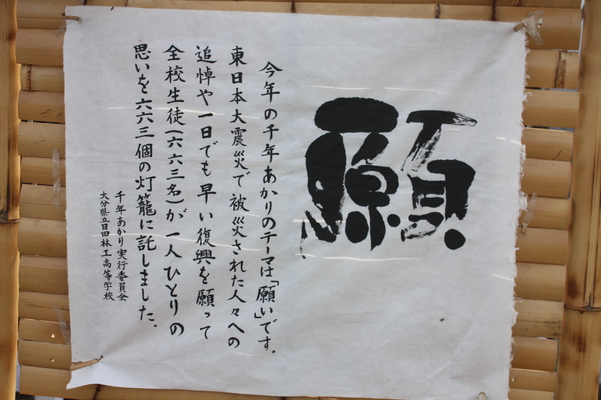 願
今年の千年あかりのテーマは「願い」です。
東日本大震災で被災された人々への
追悼や一日でも早い復興を願って
全校生徒(六六三名)が一人ひとりの
思いを六六三個の灯籠に託しました。
千年あかり実行委員会
大分県立日田林工高等学校